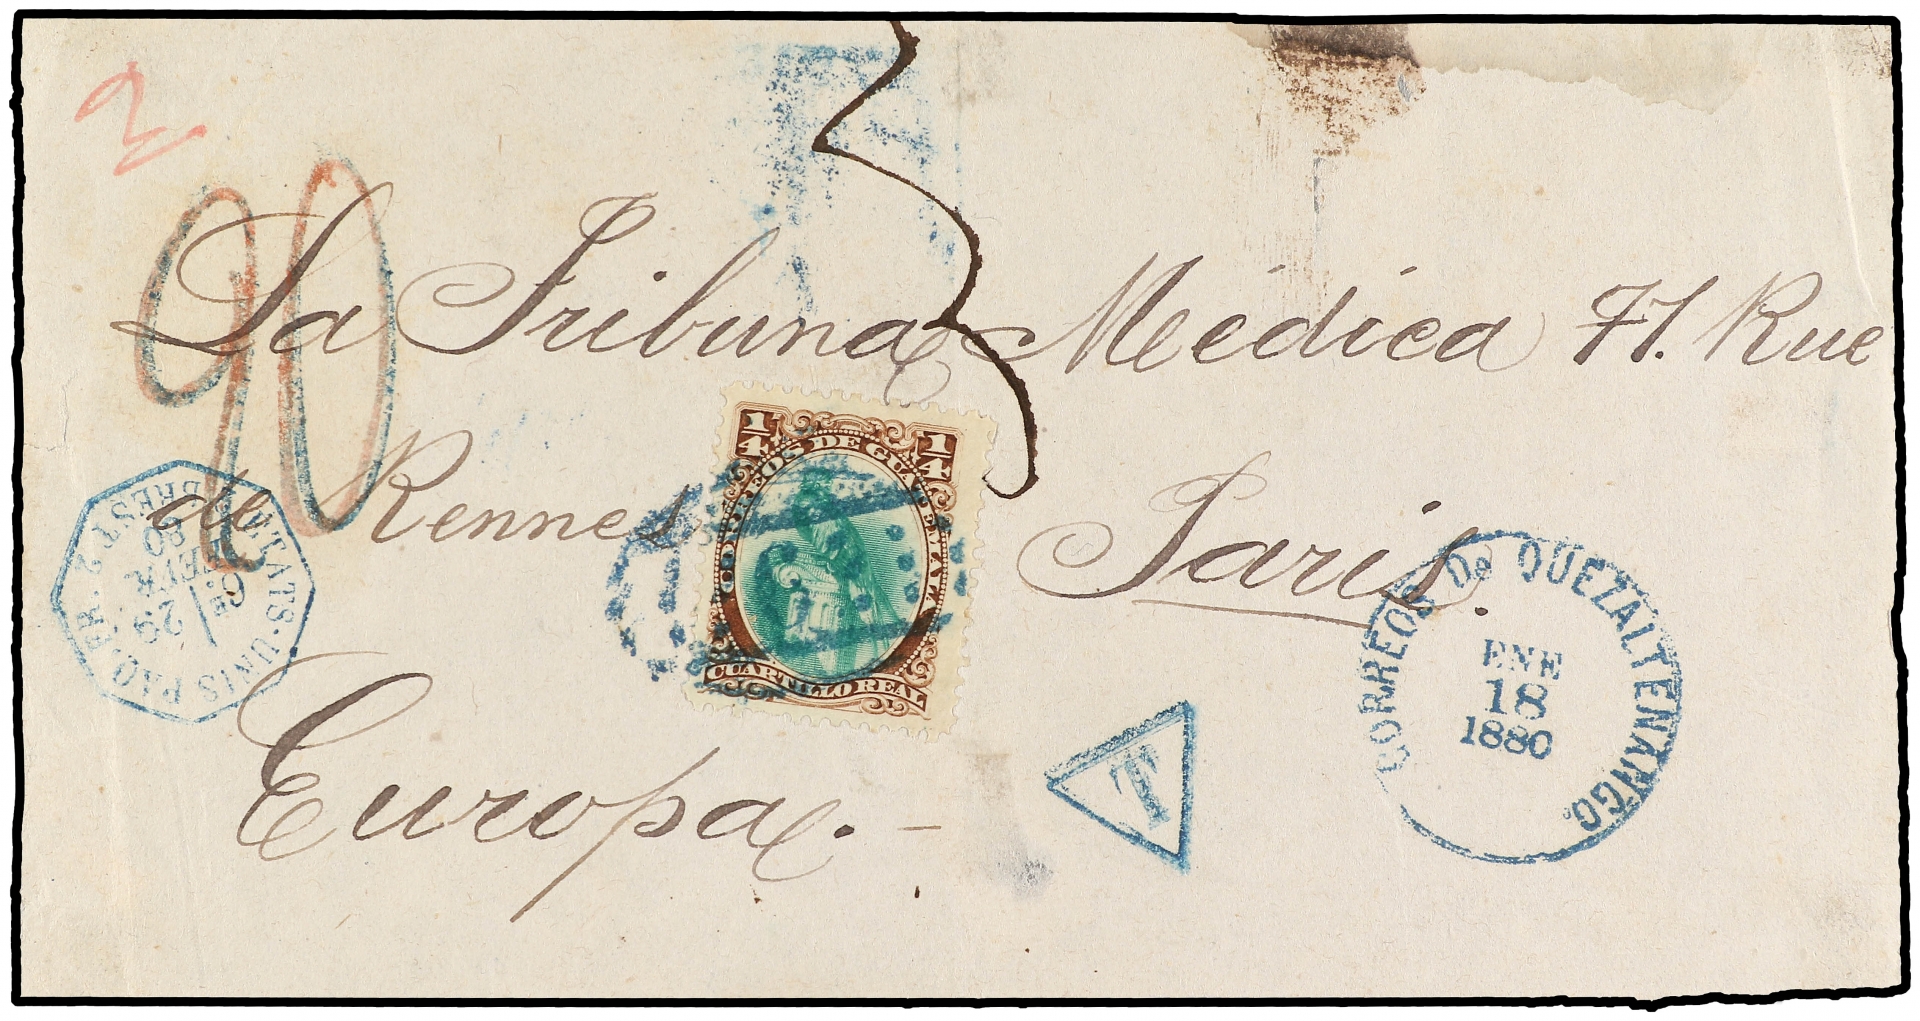 2
3
90
La Tribuna Médica 71. Rue
de Rennes Paris.
Europa. —
1/4 1/4
CORREOS DE GUATEMALA
CUARTILLO REAL
T
CORREOS De QUEZALTENANGO.
ENE
18
1880
ETATS-UNIS PAQ. FR. 2 BREST 2
29
FEVR.
80